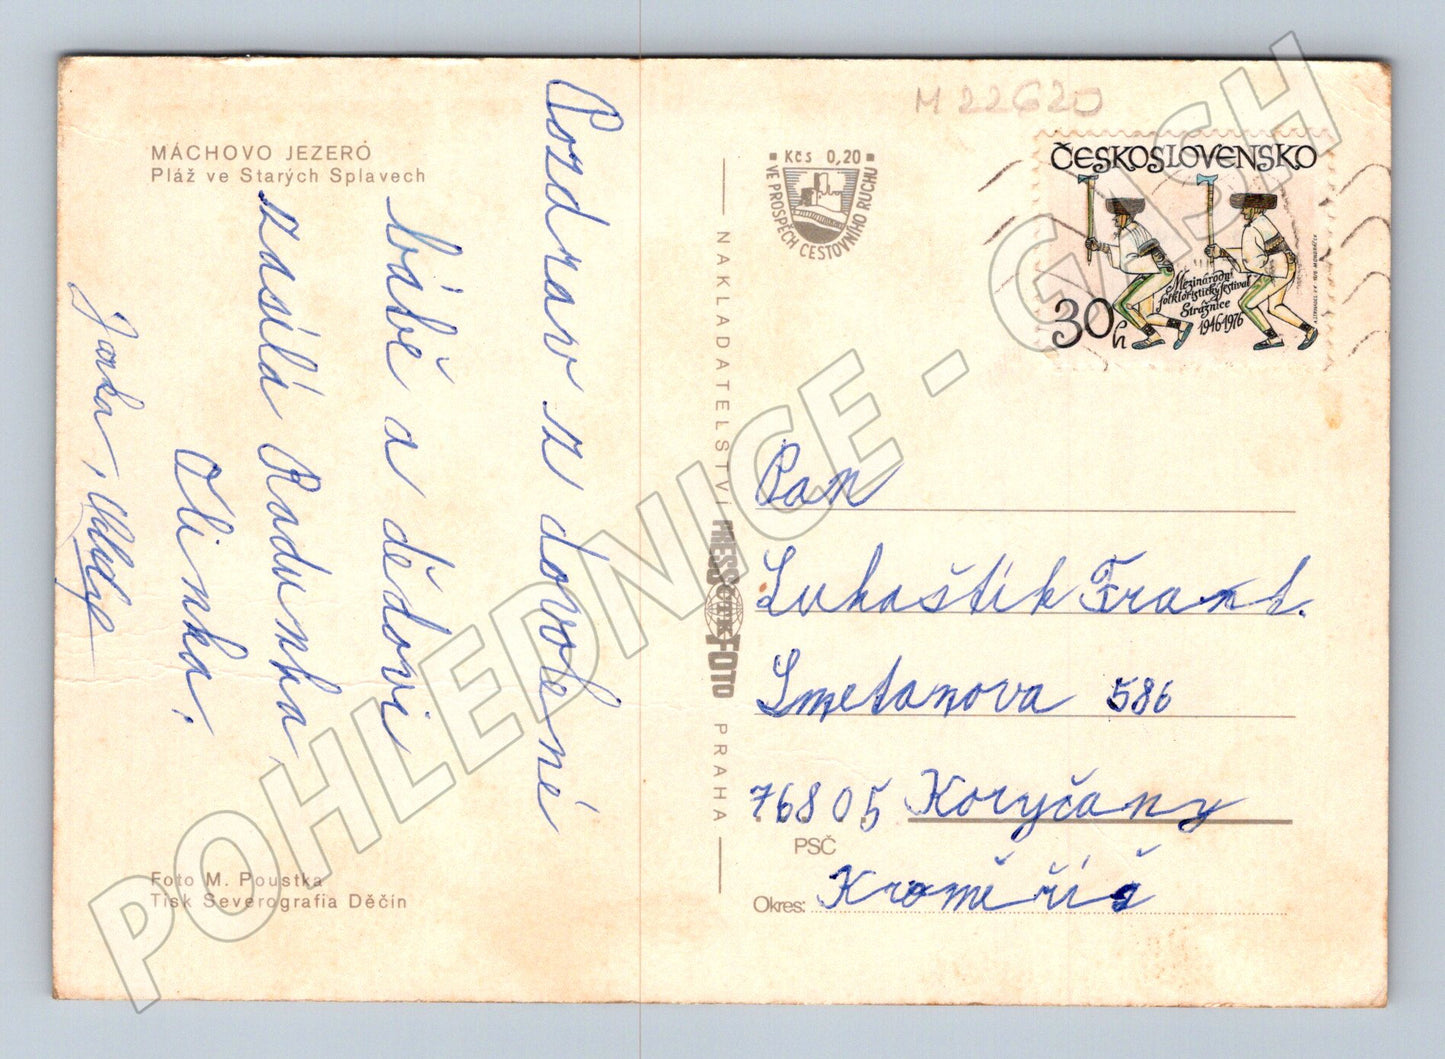 M 22620
MÁCHOVO JEZERO
Pláž ve Starých Splavech
Pozdrav z dovolené
bábě a dědovi
zasílá Radunka,
Olinka.
Jarka,
Foto M. Poustka
Tisk Severografia Děčín
NAKLADATELSTVÍ PRESSFOTO PRAHA
ČTK
Kčs 0,20
VE PROSPĚCH CESTOVNÍHO RUCHU
ČESKOSLOVENSKO
Mezinárodní
folkloristický festival
Strážnice
1946 1976
30h
Pan
Lukaštík Frant.
Smetanova 586
76805 Koryčany
PSČ
Okres: Kroměříž
POHLEDNICE - GASH